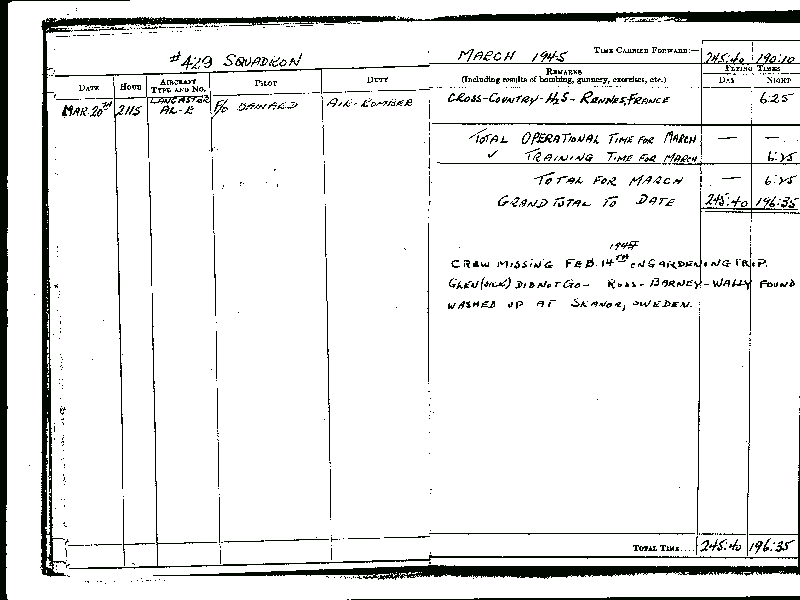 #429 SQUADRON
MARCH 1945 TIME CARRIED FORWARD:— 245:40 190:10
DATE HOUR AIRCRAFT TYPE AND NO. PILOT DUTY REMARKS (Including results of bombing, gunnery, exercises, etc.) FLYING TIMES DAY NIGHT
MAR.20TH 2115 LANCASTER AL-E F/O AIR-BOMBER CROSS-COUNTRY-H2S-RENNES, FRANCE 6:25
TOTAL OPERATIONAL TIME FOR MARCH — —
✓ TRAINING TIME FOR MARCH 6:25
TOTAL FOR MARCH — 6:25
GRAND TOTAL TO DATE 245:40 196:35
1945
CREW MISSING FEB. 14TH ON GARDENING TRIP.
GLEN (SICK) DID NOT GO- ROSS- BARNEY-WALLY FOUND
WASHED UP AT SKANOR, SWEDEN.
TOTAL TIME.... 245:40 196:35